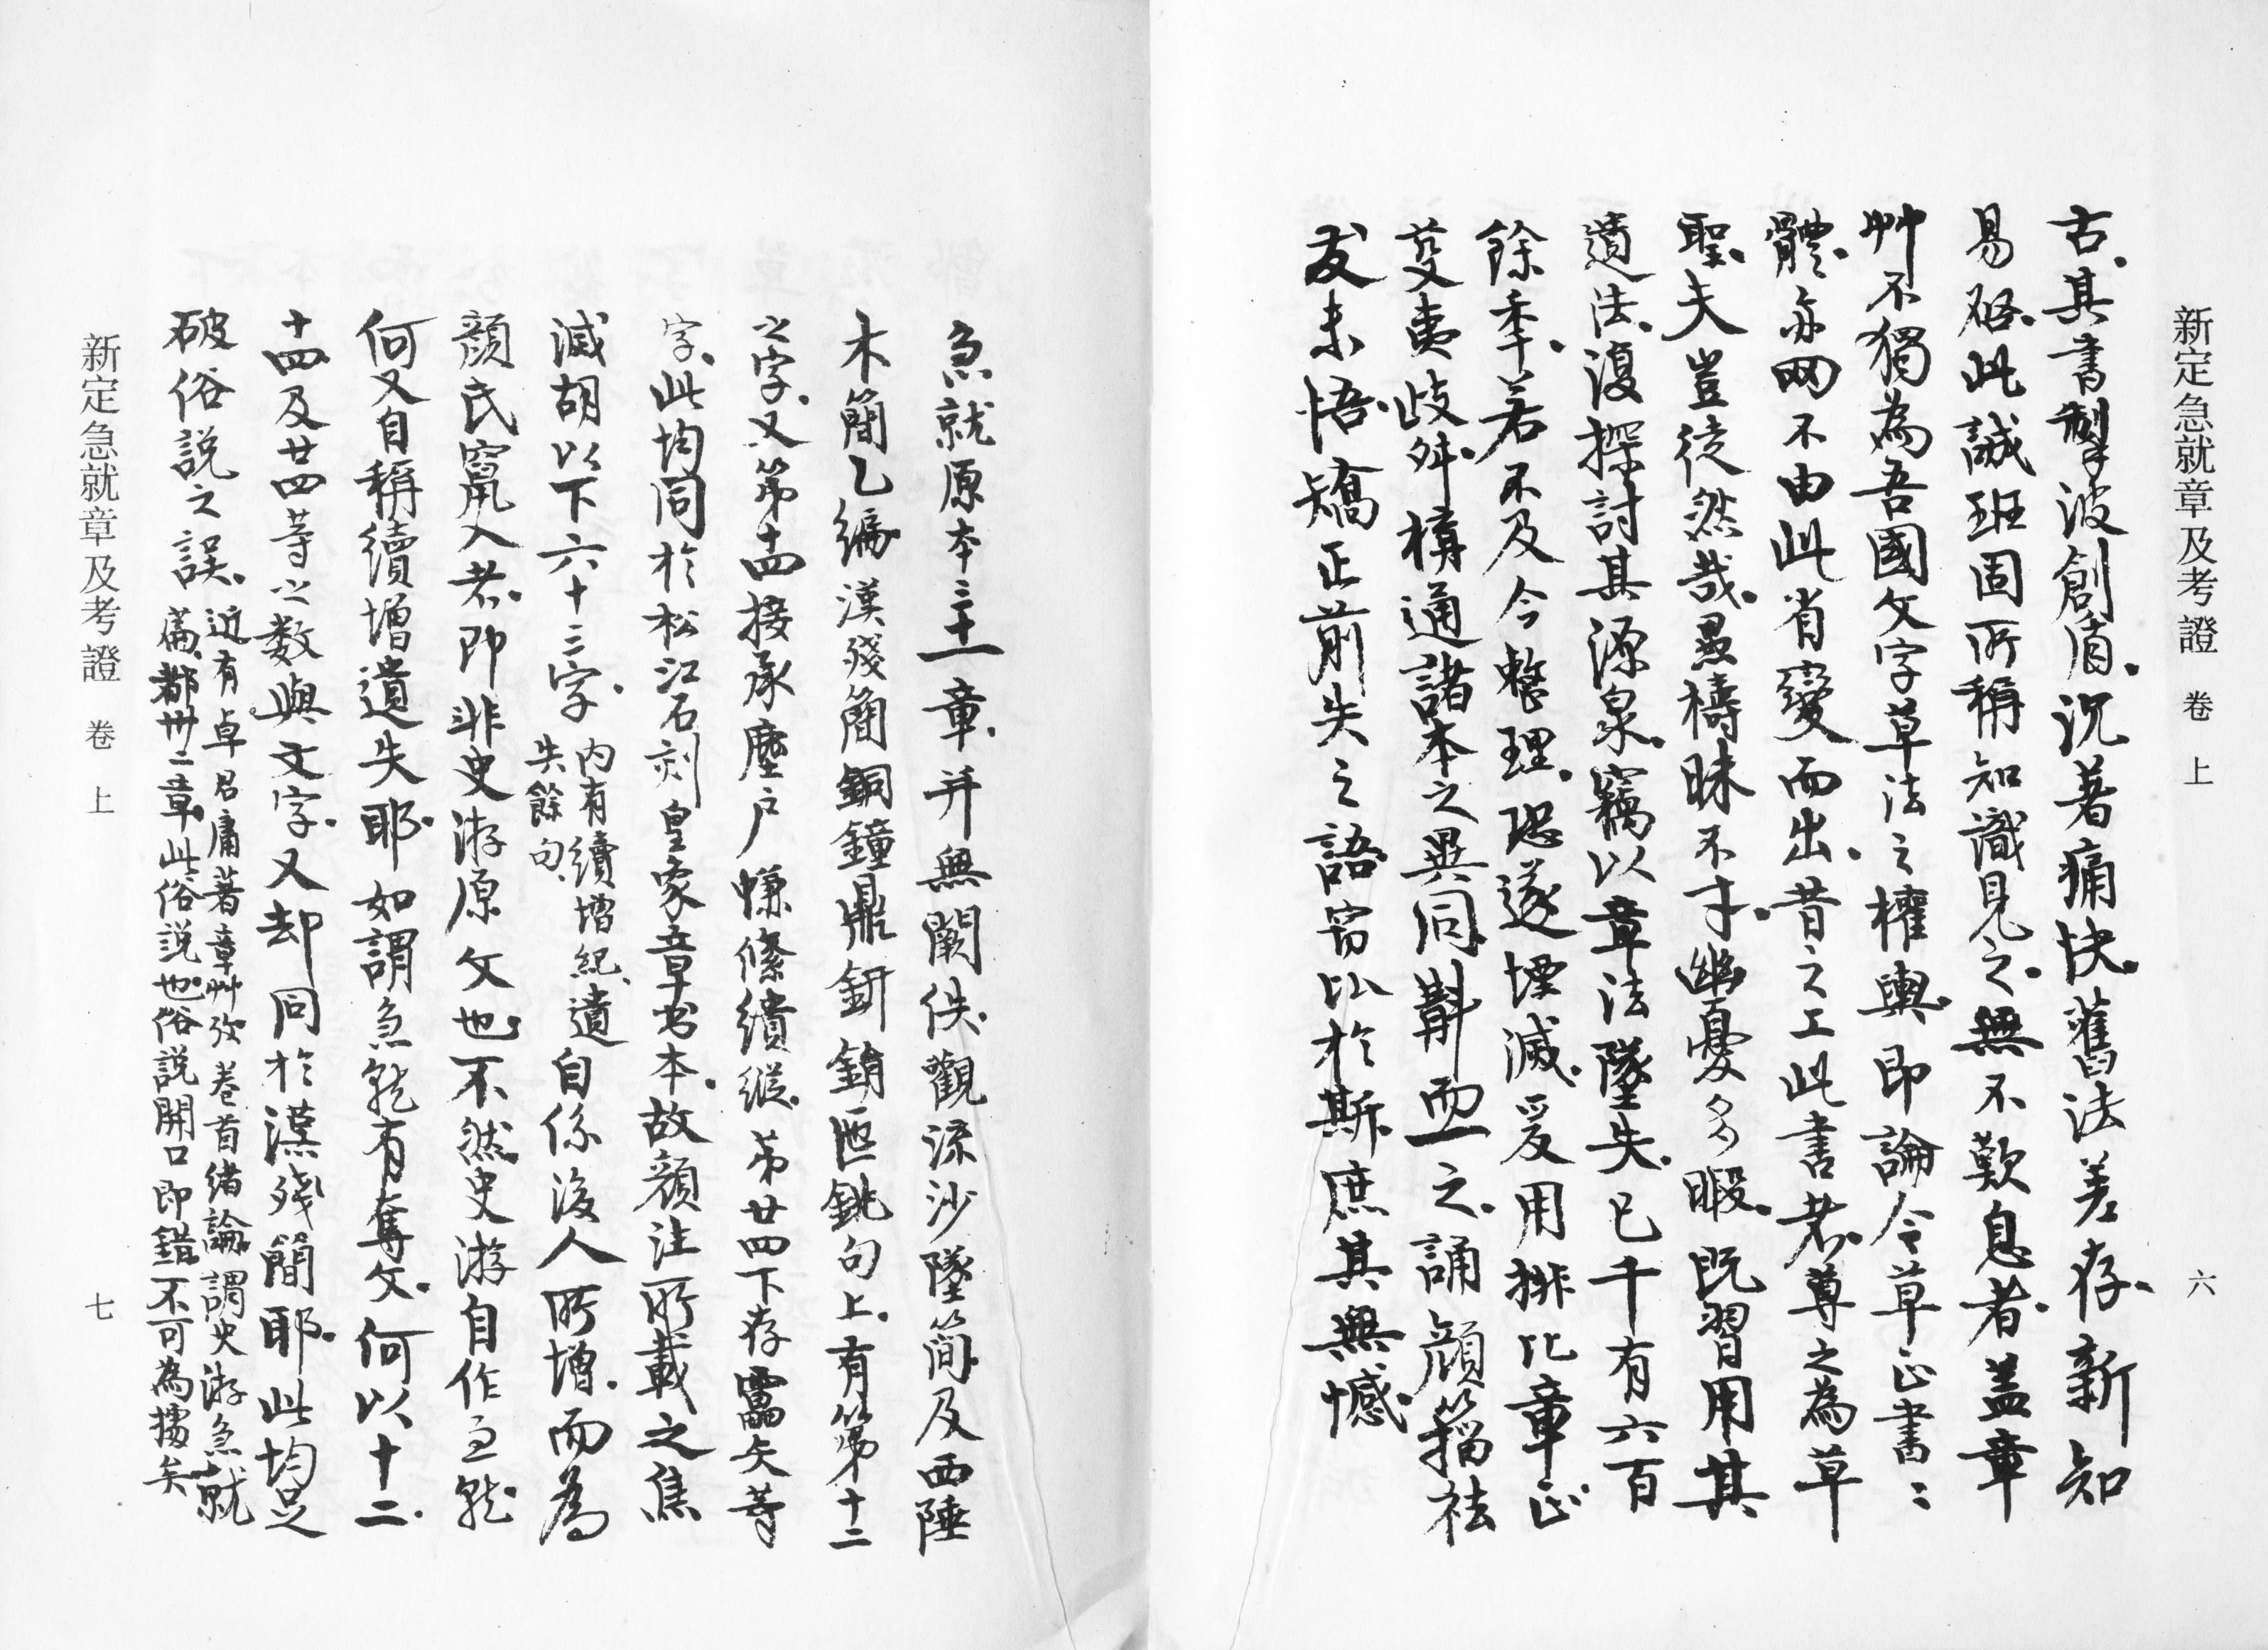 新定急就章及考證 卷上 六
古。其書掣波創眉。沉著痛快。舊法差存。新知
易啓。此誠班固所稱知識見之。無不歎息者。蓋章
艸不獨為吾國文字草法之權輿。即論今草正書〻
體。亦罔不由此省變而出。昔之工此書者。尊之為草
聖。夫豈徒然哉。愚檮昧不才。幽憂多暇。既習用其
遺法。復探討其源泉。竊以章法墜失。已千有六百
餘年。若不及今整理。恐遂堙滅。爰用排比章正
芟夷歧舛。構通諸本之異同。斠而一之。誦顏籀祛
發未悟。矯正前失之語。竊比於斯。庶其無憾。
急就原本三十一章。并無闕佚。觀流沙墜簡。及西陲
木簡乙編。漢殘簡銅鐘鼎鈃鋗匜銚句上。有第十二
之字。又第十四接承塵戶㡘絛繢縱。第廿四下存靁矢等
字。此均同於松江石刻皇象章書本。故顏注所載之焦
滅胡以下六十三字。內有續增紀。遺失餘句。自係後人所增。而為
顏氏竄入者。即非史游原文也。不然。史游自作急就
何又自稱續增遺失耶。如謂急就有奪文。何以十二。
十四及廿四等之数與文字。又却同於漢殘簡耶。此均足
破俗說之誤。近有卓君庸著章艸攷卷首緒論。謂史游急就
篇。都卅二章。此俗說也。俗說開口即錯。不可為據矣
新定急就章及考證 卷上 七